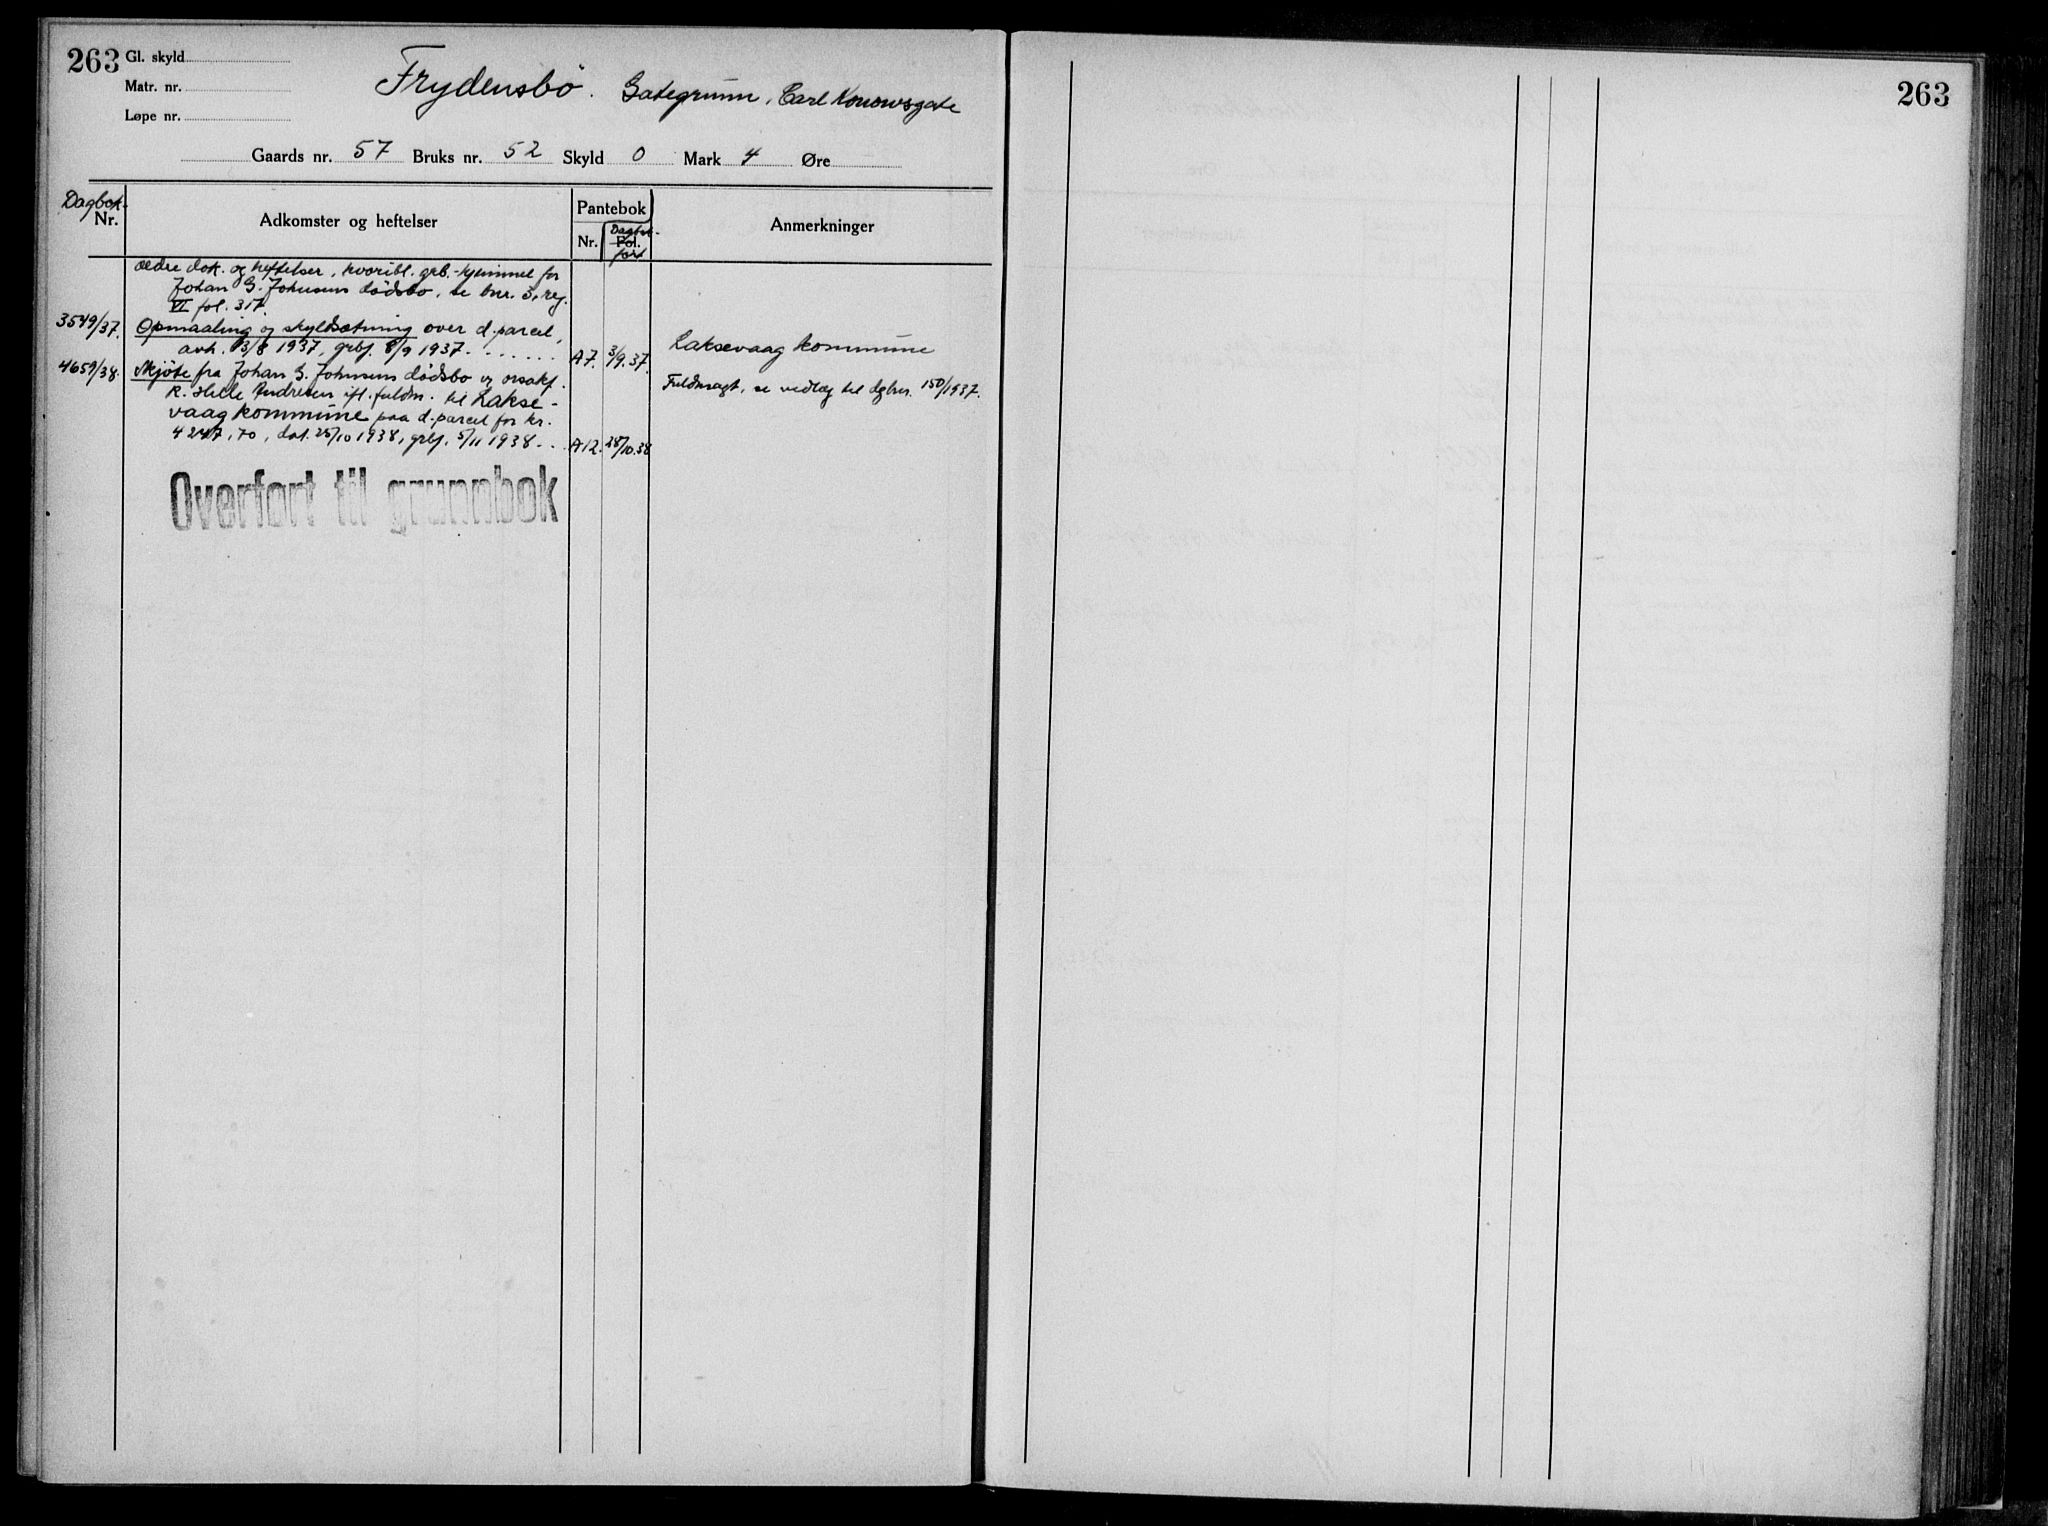 263
Gl. skyld
Matr. nr.
Løpe nr.
Frydensbø. Gategrunn, Carl Konowsgate
Gaards nr. 57 Bruks nr. 52 Skyld 0 Mark 4 Øre
Dagbok-
Nr.
Adkomster og heftelser
Pantebok
Nr.
Dagbok-
Fol.
ført
Anmerkninger
ældre dok. og heftelser, hvoribl. grb.-hjemmel for
Johan G. Johnsens dødsbo, se bnr. 3, reg.
VI fol. 317.
3549/37. Opmaaling og skyldsætning over d. parcel,
avh. 13/8 1937, grbf. 8/9 1937. A7. 3/9.37. Laksevaag kommune
4659/38. Skjøte fra Johan G. Johnsens dødsbo og orsakf.
R. Helle Andresen ifl. fuldm. til Lakse-
vaag kommune paa d. parcel for kr.
4247,70, dat. 25/10 1938, grbf. 5/11 1938. A12. 28/10.38
Fuldmagt, se vedlæg til dgbnr. 150/1937.
Overført til grunnbok
263